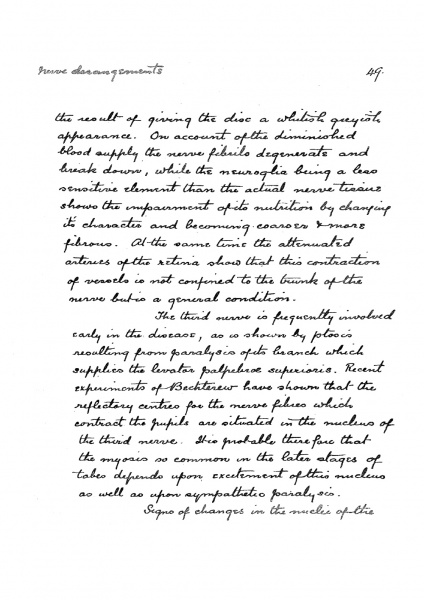 Nerve derangements 49.
the result of giving the disc a whitish greyish
appearance. On account of the diminished
blood supply the nerve fibrils degenerate and
break down, while the neuroglia being a less
sensitive element than the actual nerve tissue
shows the impairment of its nutrition by changing
its character and becoming coarser & more
fibrous. At the same time the attenuated
arteries of the retina show that this contraction
of vessels is not confined to the trunk of the
nerve but is a general condition.
The third nerve is frequently involved
early in the disease, as is shown by ptosis
resulting from paralysis of its branch which
supplies the levator palpebrae superioris. Recent
experiments of Bechterew have shown that the
reflectory centres for the nerve fibres which
contract the pupils are situated in the nucleus of
the third nerve. It is probable therefore that
the myosis so common in the later stages of
tabes depends upon excitement of this nucleus
as well as upon sympathetic paralysis.
Signs of changes in the nuclei of the